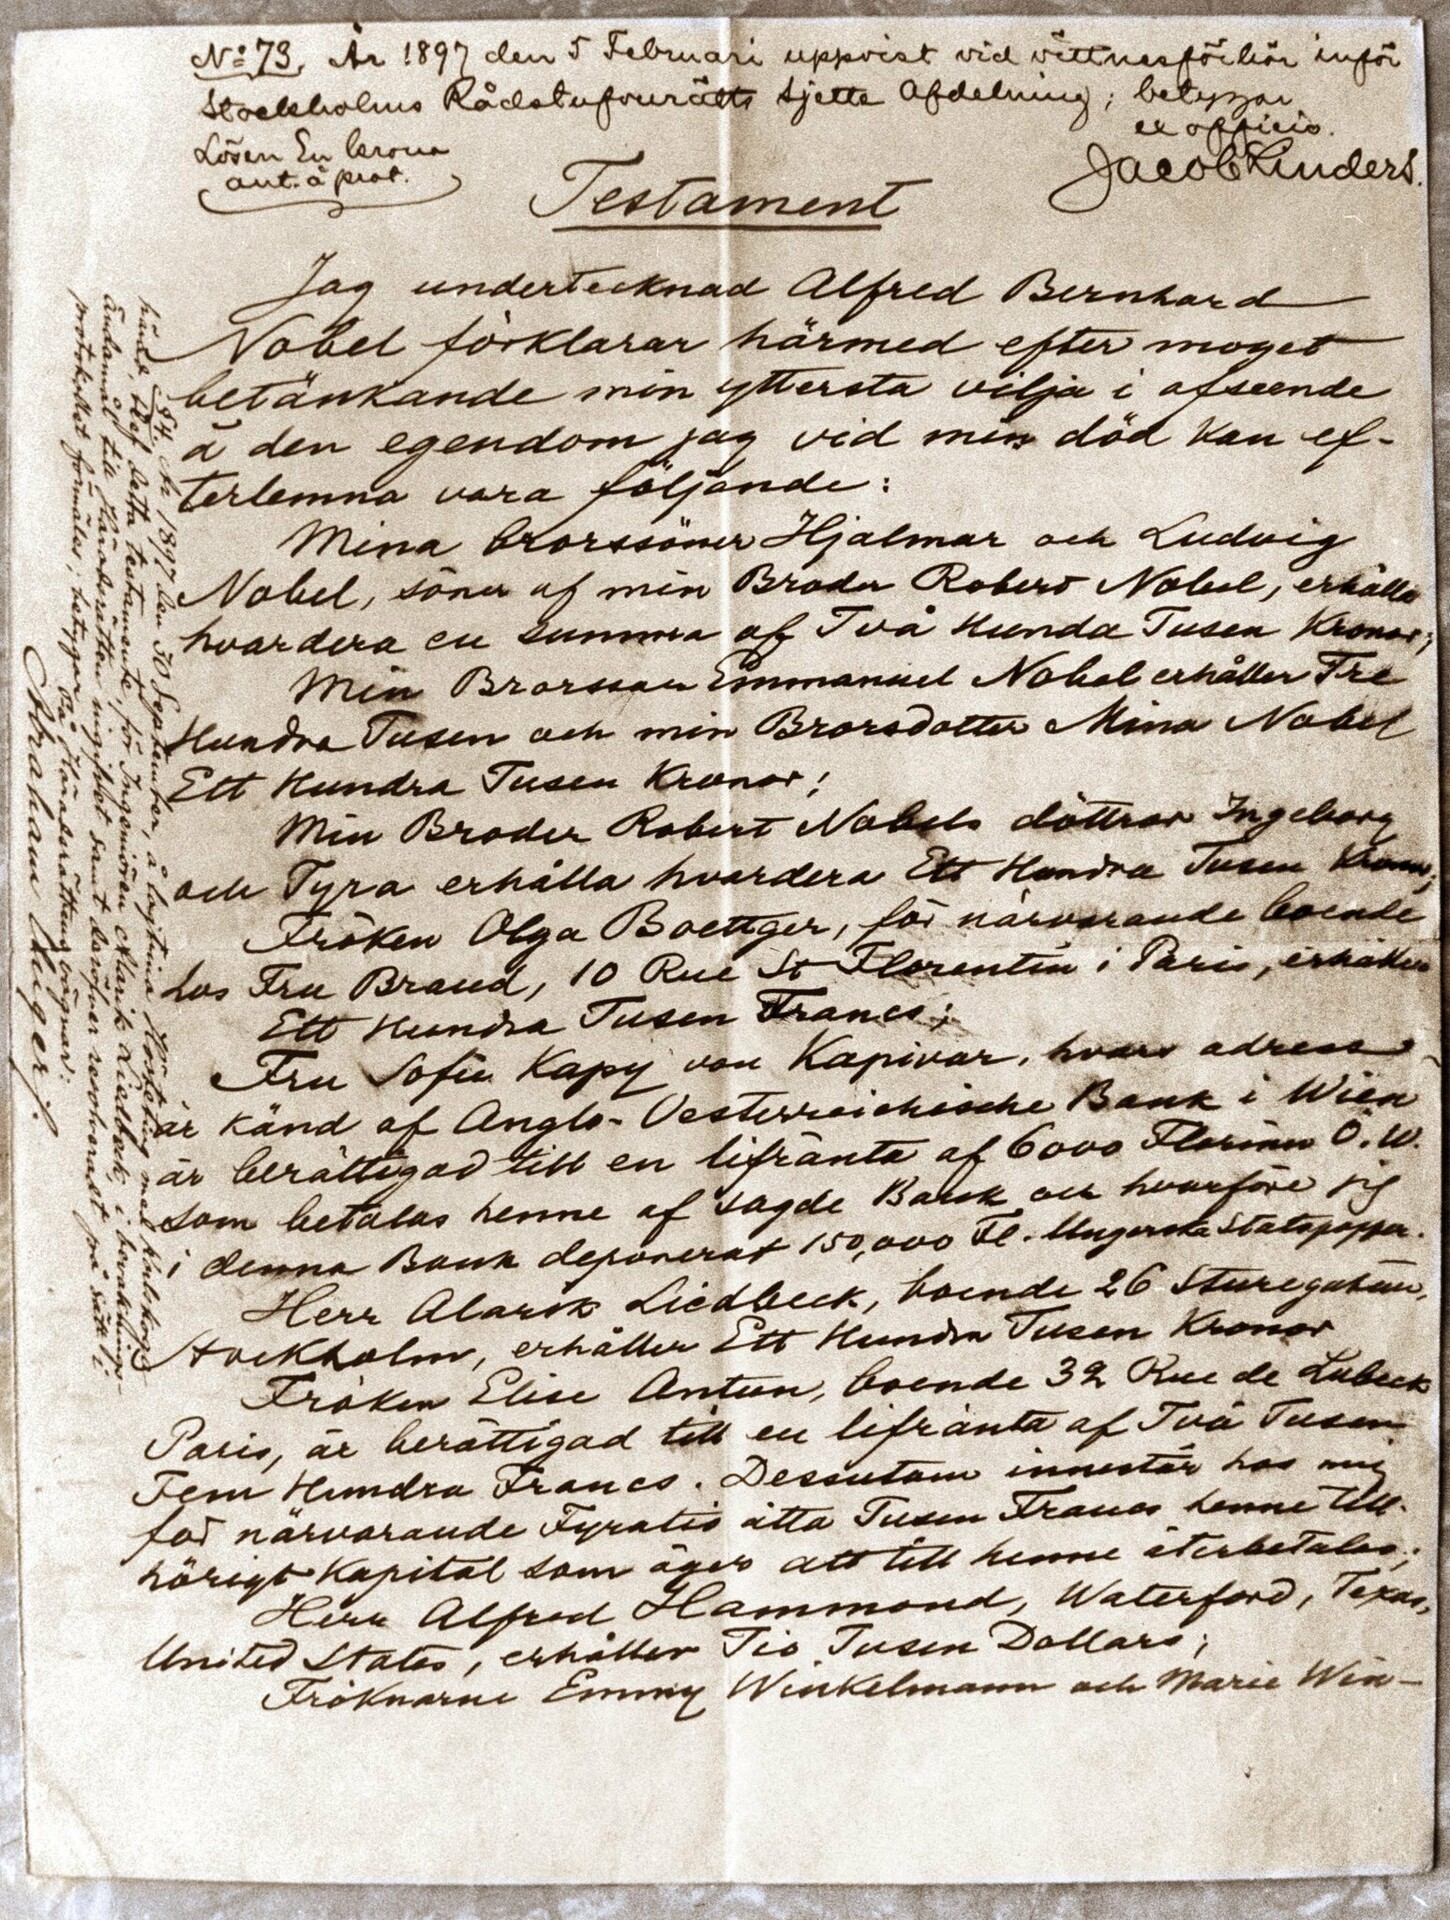 No 73, År 1897 den 5 Februari uppvist vid vittnesförhör inför
Stockholms Rådstufvurätts Sjette Afdelning; betygar
ex officio.
Lösen En krona
ant. å prot.
Jacob Linders.
Testament
Jag undertecknad Alfred Bernhard
Nobel förklarar härmed efter moget
betänkande min yttersta vilja i afseende
å den egendom jag vid min död kan ef-
terlemna vara följande:
Mina Brorssöner Hjalmar och Ludvig
Nobel, söner af min Broder Robert Nobel, erhålla
hvardera en summa af Två Hundra Tusen Kronor;
Min Brorsson Emmanuel Nobel erhåller Tre
Hundra Tusen och min Brorsdotter Mina Nobel
Ett Hundra Tusen Kronor;
Min Broder Robert Nobels döttrar Ingeborg
och Tyra erhålla hvardera Ett Hundra Tusen Kronor;
Fröken Olga Boettger, för närvarande boende
hos Fru Brand, 10 Rue St Florentin i Paris, erhåller
Ett Hundra Tusen Francs;
Fru Sofie Kapy von Kapivar, hvars adress
är känd af Anglo-Oesterreichische Bank i Wien
är berättigad till en lifränta af 6000 Florins Ö.W.
som betalas henne af sagde Bank och hvarföre jag
i denna Bank deponerat 150,000 Fl. i Ungerska Statspapper.
Herr Alarik Liedbeck, boende 26 Sturegatan,
Stockholm, erhåller Ett Hundra Tusen Kronor
Fröken Elise Antun, boende 32 Rue de Lubeck
Paris, är berättigad till en lifränta af Två Tusen
Fem Hundra Francs. Dessutom innestår hos mig
för närvarande Fyratio åtta Tusen Francs henne till-
hörigt Kapital som äger att till henne återbetalas;
Herr Alfred Hammond, Waterford, Texas,
United States, erhåller Tio Tusen Dollars;
Fröknarne Emmy Winkelmann och Marie Win-
År 1897 den 30 September, å lagtima Hösteting med Karlskoga
härad, blef detta testamente, för Ingeniören Alarik Liedbeck, i bevaknings-
ändamål, till Häradsrätten ingifvet samt deröfver resolveradt på sätt
protokollet förmäler; betygar På Häradsrättens vägnar:
Abraham Unger.